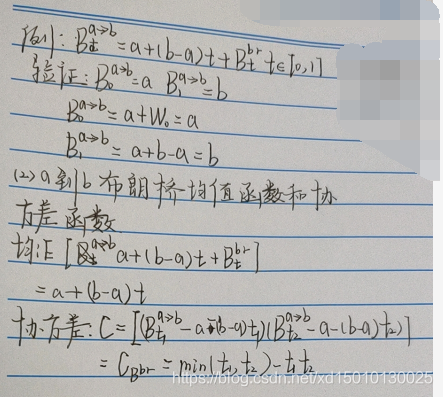 例: B_t^{a→b} = a+(b-a)t + B_t^{br} t∈[0,1]
验证: B_0^{a→b} = a B_1^{a→b} = b
B_0^{a→b} = a + W_0 = a
B_1^{a→b} = a+b-a = b
(2) a到b布朗桥均值函数和协
方差函数
均: E[B_t^{a→b} a+(b-a)t + B_t^{br}]
= a+(b-a)t
协方差: C = [(B_{t_1}^{a→b} - a-(b-a)t_1)(B_{t_2}^{a→b} - a-(b-a)t_2)]
= C_{B^{br}} = min(t_1, t_2) - t_1 t_2
https://blog.csdn.net/xd15010130025